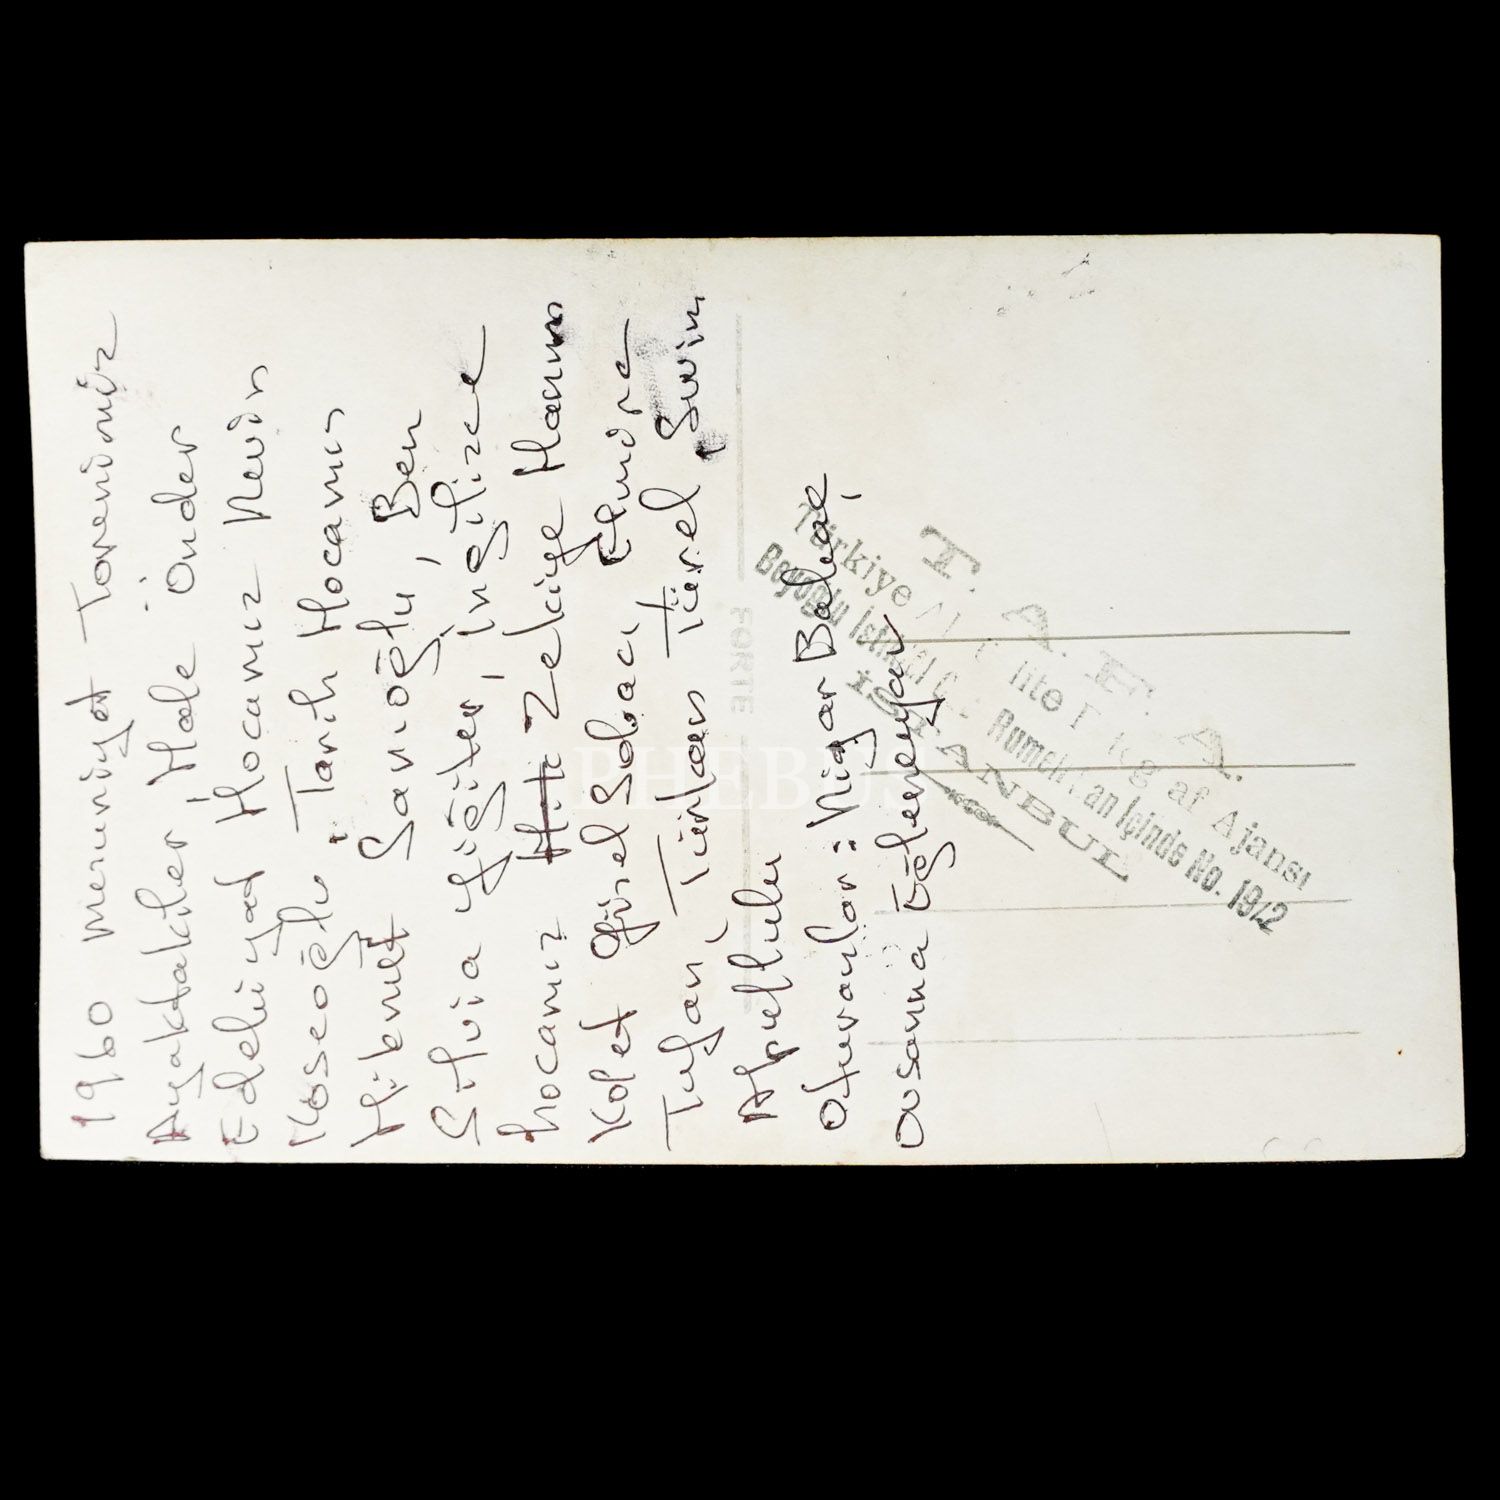 1960 mezuniyet Törenimiz
Ayaktakiler, Hale Önder
Edebiyat Hocamız Nevin
Köseoğlu Tarih Hocamız
Hikmet Samioğlu, Ben
Silvia Yiğiter, İngilizce
hocamız Zekiye Hanım
Kolet Gürel Sabacı Elmira
Tufan, Türkan Türel, Suvin
Oturanlar: Nigar Bahar,
Ovsanna
FORTE
T. A. F. A.
Türkiye Ajansı
Beyoğlu İstiklâl İçinde No. 19/2
İSTANBUL
PHEBUS